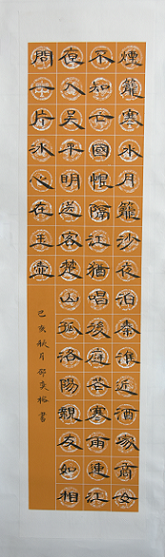 煙籠寒水月籠沙夜泊秦淮近酒家商女
不知亡國恨隔江猶唱後庭花寒雨連江
夜入吳平明送客楚山孤洛陽親友如相
問一片冰心在玉壺
己亥秋月邵
書